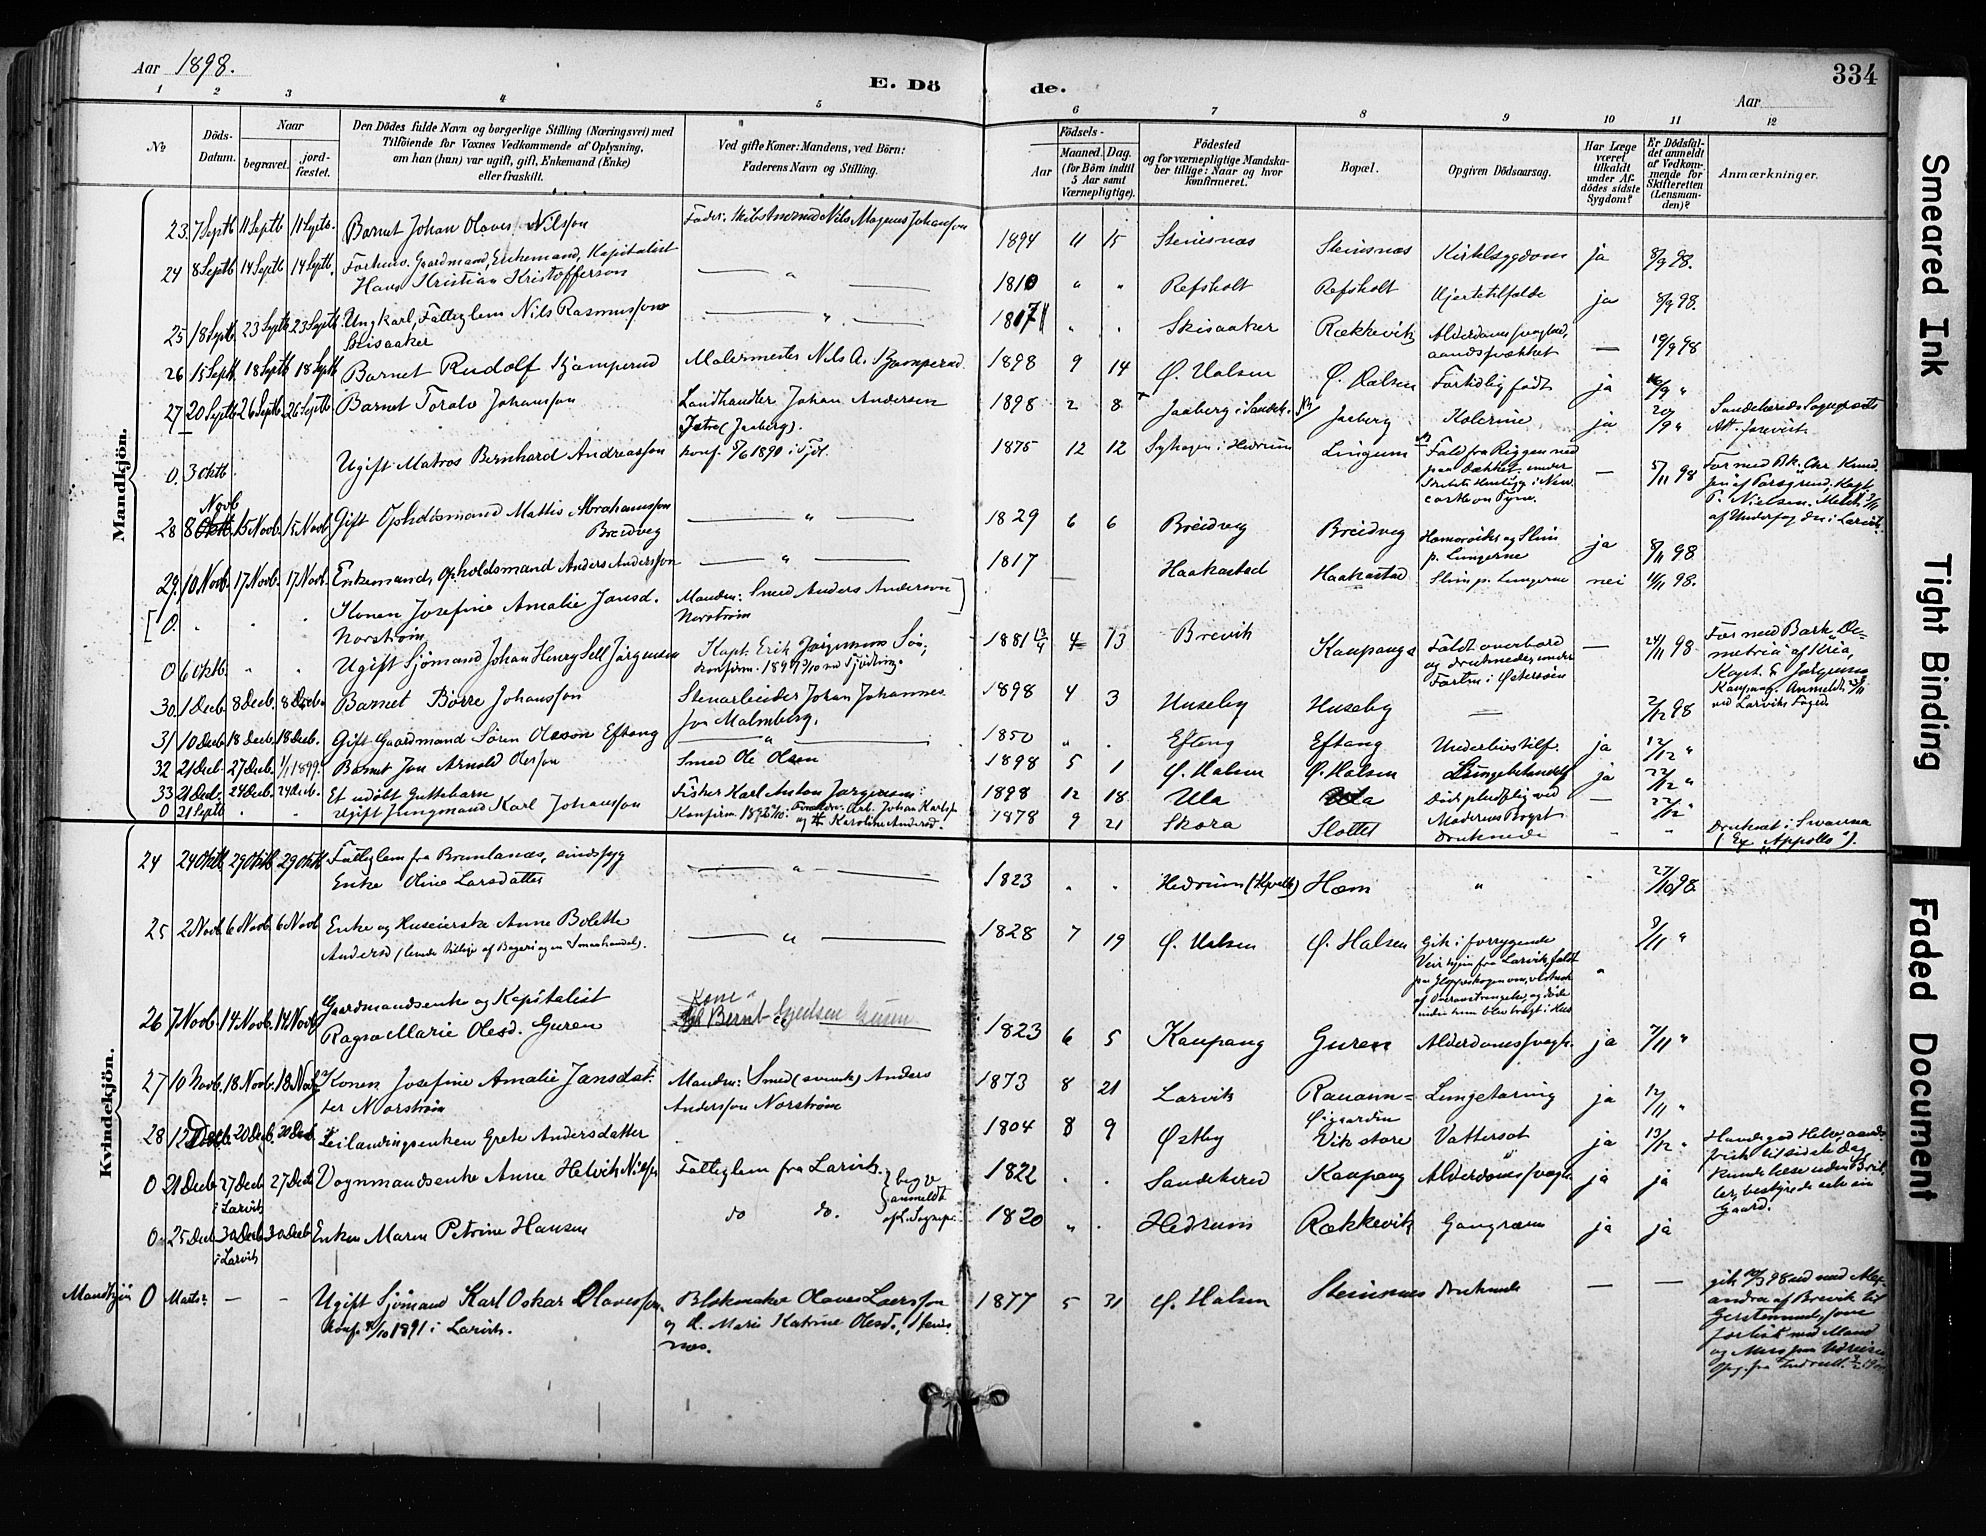 Aar 1898.
E. Dö
de.
334
Aar
1 2 3 4 5 6 7 8 9 10 11 12
No
Döds-
Datum.
Naar
begravet.
jord-
fæstet.
Den Dödes fulde Navn og borgerlige Stilling (Næringsvei) med
Tilföiende for Voxnes Vedkommende af Oplysning,
om han (hun) var ugift, gift, Enkemand (Enke)
eller fraskilt.
Ved gifte Koner: Mandens, ved Börn:
Faderens Navn og Stilling.
Födsels-
Aar
Maaned. Dag.
(for Börn indtil
5 Aar samt
Værnepligtige).
Födested
og for værnepligtige Mandska-
ber tillige: Naar og hvor
konfirmeret.
Bopæl.
Opgiven Dödsaarsag.
Har Læge
været
tilkaldt
under Af-
dödes sidste
Sygdom?
Er Dödsfal-
det anmeldt
af Vedkom-
mende for
Skifteretten
(Lensman-
den)?
Anmærkninger.
Mandkjön.
23. 7 Septb 11 Septb 11 Septb. Barnet Johan Olaves Nilsson Fader: Nils Magnus Johansson 1894 11 15 Steinsnæs Steinsnæs Kirtelsygdom ja 8/9 98.
24 8 Septb 14 Septb 14 Septb. Forhens. Gaardmand, Enkemand, Kapitalist
Hans Kristian Kristofferson — " — 1810 " " Refsholt Refsholt Hjertetilfælde ja 8/9 98.
25 18 Septb. 23 Septb 23 Septb Ungkarl, Fattiglem Nils Rasmussen
Skisaaker — " — 1817 " . Skisaaker Rækkevik Alderdomssvaghed,
aandssvækket — 19/9 98
26 15 Septb. 18 Septb 18 Septb Barnet Rudolf Bjamperud Malermester Nils A. Bjamperud 1898 9 14 Ø. Halsen Ø. Halsen Fortidlig født ja 16/9 "
27 20 Septb 26 Septb. 26 Septb Barnet Toralv Johansson Landhandler Johan Andersen
Istre (Jaaberg). 1898 2 8 Jaaberg i Sandeh. Jaaberg Kolerine ja 20/9 " Sandeherreds Sogneprests
Att. forevist
0. 3 Oktb Ugift Matros Bernhard Andreassen konf. 5/6 1890 i Tjøl. 1875 12 12 Syhagen i Hedrum Lingum Fald fra Riggen ned
paa Dækket under
i New-
castle on Tyne. — 5/11 98 For med Bk. Chr. Knud-
sen af Porsgrund, Kapt.
P. Nielsen. Meldt
af Underfogden i Larvik.
28 8 Novb 15 Novb 15 Novb Gift Opholdsmand Mattis Abrahamsson
Breidveg — " — 1829 6 6 Breidveg Breidveg Hæmorøider og Slim
p. Lungerne ja 8/11 98
29. 10 Novb. 17 Novb. 17 Novb. Enkemand, opholdsmand Anders Andersson — " — 1817 — Haakastad Haakastad Slim p. Lungerne nei 11/11 98.
[0. " . . Konen Josefine Amalie Jansd.
Norstrøm Manden: Smed Anders Andersson
Norstrøm ]
0 6 Oktb. " . Ugift Sjömand Johan Henry Sell Jörgensen Kapt. Erik Jörgensens Søn;
konfirm. 1897 3/10 ved Tjødling. 1881 13/4 4 13 Brevik Kaupang Faldt overbord
og druknede under
Farten i Østersøen — 24/11 98 For med Bark "De-
metria" af Kria,
Kapt. E. Jørgensen
Kaupang. Anmeldt
ved Larviks Foged.
30. 1 Decb. 8 Decb. 8 Decb. Barnet Börre Johansson Stenarbeider Johan Johannes-
son Malmberg. 1898 4 3 Huseby Huseby — 2/12 98
31 10 Decb 18 Decb. 18 Decb. Gift Gaardmand Sören Olesøn Eftang — " — 1850 " . Eftang Eftang Underlivstilf. ja 12/12 "
32 21 Decb. 27 Decb. 1/1 1899. Barnet Jon Arnold Olesson Smed Ole Olsen 1898 5 1 Ø. Halsen Ø. Halsen Lungebetændels ja 22/12 "
33 21 Decb. 24 Decb. 24 Decb. Et udöbt Guttebarn Fisker Karl Anton Jørgensen: 1898 12 18 Ula Ula Død pludselig ved
Moderens Bryst — 22/12 "
0 21 Septb " . Ugift Jungmand Karl Johansson Konfirm. 1892 Forældre: Arb. Johan Karlss.
og H. Karoline Andersd. 1878 9 21 Skora Slottet Druknede " " Druknet i
(Ex "Appollo").
Kvindekjön.
24 24 Oktb 29 Oktb 29 Oktb Fattiglem fra Brunlanæs, sindssyg
Enke Oline Larsdatter — " — 1823 " . Hedrum (Kvelle) Hæm " 27/10 98.
25 2 Novb. 6 Novb. 6 Novb Enke og Huseierske Anne Bolette
Andersd (levede tillige af Bageri og en Smaahandel). — " — 1828 7 19 Ø. Halsen Ø. Halsen Gik i forrygende
Veir hjem fra Larvik, faldt
af Overanstrengelse, og døde
inden hun blev bragt i Hus " 3/11 "
26 7 Novb. 14 Novb. 14 Novb Gaardmandsenke og Kapitalist
Ragna Marie Olesd. Guren Kone
Bernt Guren 1823 6 5 Kaupang Guren Alderdomssvagh. ja 7/11 "
27 10 Novb. 18 Novb. 18 Novb Konen Josefine Amalie Jansdat-
ter Norstrøm Manden: Smed (svensk) Anders
Andersson Norstrøm 1873 8 21 Larvik Rauann-
Øigaarden Lungetæring ja 12/11 "
28 12 Decb. 20 Decb. 20 Decb. Leilændingsenken Grete Andersdatter . 1804 8 9 Østby Vik store Vattersot ja 13/12 " Havde god Helse, aands-
frisk til sidste Dag,
kunde læse uden Bril-
ler, bestyrede selv sin
Gaard.
0 21 Decb 27 Decb
i Larvik 27 Decb Vognmandsenke Anne Helvik Nilsen Fattiglem fra Larvik. } begge
anmeldt
af Sognepr. 1822 . . Sandeherred Kaupang Alderdomssvagh. ja ja
0 25 Decb 30 Decb
i Larvik 30 Decb Enken Maren Petrine Hansen do do. 1820 " . Hedrum Rækkevik Gangræn ja ja
Mandkjön 0 Marts? — — Ugift Sjömand Karl Oskar Olavesson,
konf. 4/10 1891 i Larvik. Blokmaker Olaves Larsson
og H. Marie Katrine Olesd., Steins-
næs. 1877 5 31 Ø. Halsen Steinsnæs Druknede — — gik 12/3 98 ud med Alex-
andra af Brevik til
Gerstemunde,
forlist med Mand
og Mus
Smeared Ink
Tight Binding
Faded Document